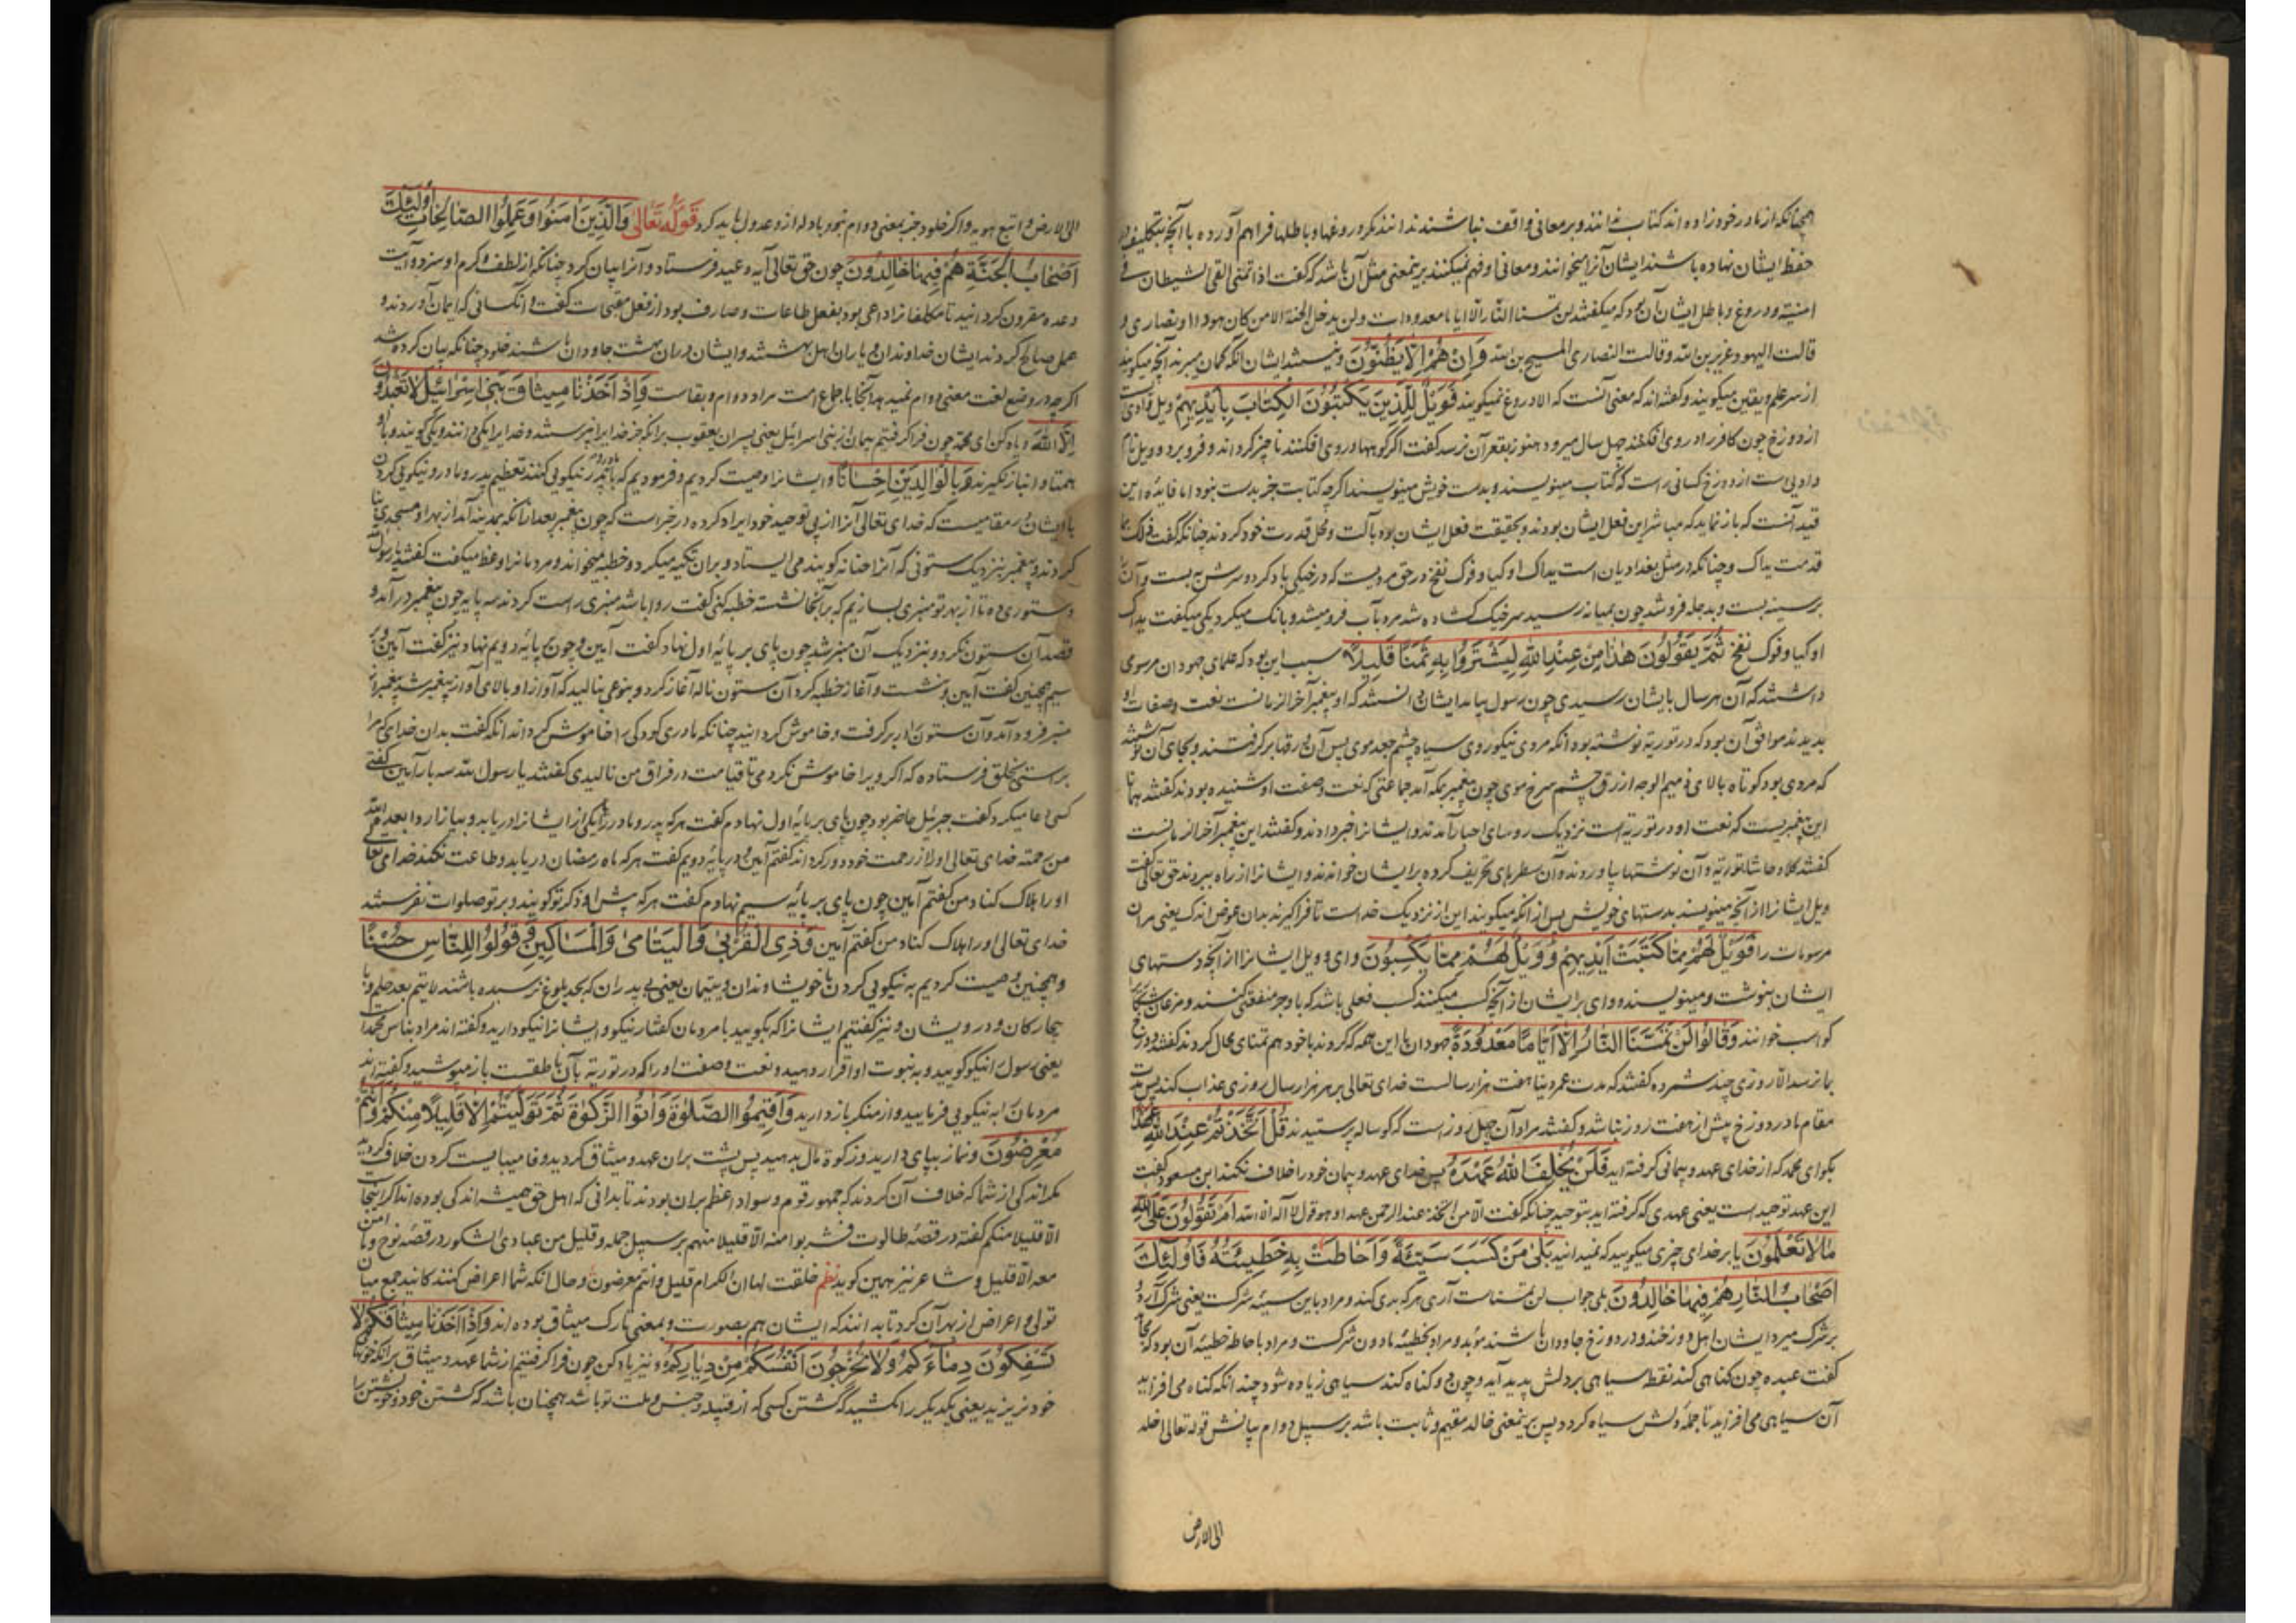 همچنانکه از مادر خود زاده اند کتاب ندانند و بر معانی واقف نباشند ندانند مکر دروغها و باطلها فراهم آورده با آنچه بتکلیف در
حفظ ایشان نهاده باشند ایشان آنرا میخوانند و معانی او فهم نمیکنند برینمعنی مثل آن باشد که گفت اذا تمنی القی الشیطان فی
امنیته و دروغ و باطل ایشان آن بود که میکفتند لن تمسنا النار الا ایاما معدودات و لن یدخل الجنة الا من کان هودا او نصاری و
قالت الیهود عزیر بن الله و قالت النصاری المسیح بن الله وَاِنْ هُمْ اِلَّا یَظُنُّونَ و نیستند ایشان الا آنکه کمان میبرند آنچه میکویند
از سر علم و یقین میکویند و کفته اند که معنی آنست که الا دروغ نمیکویند فَوَیْلٌ لِلَّذِینَ یَکْتُبُونَ الْکِتَابَ بِاَیْدِیهِمْ ویل وادی است
از دوزخ چون کافر را در وی افکنند چهل سال میرود هنوز بقعر آن نرسد کفت اکر کوهها در وی افکنند ناچیز کرداند و فرو برد و ویل نام
وادیی است از دوزخ کسانی راست که کتاب مینویسند و بدست خویش مینویسند اکرچه کتابت جز بدست نبود اما فایده این
قید آنست که باز نماید که مباشر این فعل ایشان بودند و بحقیقت فعل ایشان بود بآلت و محل قدرت خود کردند چنانکه گفت ذلک بما
قدمت یداک و چنانکه در مثل بغدادیان است یداک اوکیا و فوک نفخ در حق مردیست که در خیکی باد کرد و سرش به بست و آن
بر سینه بست و بدجله فرو شد چون بمیانه رسید سر خیک کشاده شد مرد بآب فرو میشد و بانک میکرد یکی میکفت یداک
اوکیا و فوک نفخ ثُمَّ یَقُولُونَ هٰذَا مِنْ عِنْدِ اللّٰهِ لِیَشْتَرُوا بِهِ ثَمَنًا قَلِیلًا سبب این بود که علمای جهودان مرسومی
داشتند که آن هر سال بایشان رسیدی چون رسول بیامد ایشان دانستند که او پیغمبر آخر الزمانست نعت و صفات او
بدیدند موافق آن بود که در توریة نوشته بود آنکه مردی نیکوروی سیاه چشم جعد موی پس آن ورقها برکرفتند و بجای آن نوشتند
که مردی بود کوتاه بالای ذمیم الوجه ازرق چشم سرخ موی چون پیغمبر بمکه آمد جماعتی که نعت و صفت او شنیده بودند کفتند همانا
این پیغمبریست که نعت او در توریة است نزدیک روسای احبار آمدند و ایشانرا خبر دادند و کفتند این پیغمبر آخر الزمانست
کفتند کلا و حاشا توریة و آن نوشتها بیاوردند و آن سطرهای تحریف کرده بر ایشان خواندند و ایشانرا از راه ببردند حق تعالی گفت
ویل ایشانرا از آنچه مینویسند بدستهای خویش پس از آنکه میکویند این از نزدیک خداست تا فراکیرند بدان عوض اندک یعنی مر آن
مرسومات را فَوَیْلٌ لَهُمْ مِمَّا کَتَبَتْ اَیْدِیهِمْ وَوَیْلٌ لَهُمْ مِمَّا یَکْسِبُونَ وای و ویل ایشانرا از آنچه دستهای
ایشان بنوشت و مینویسند و وای بر ایشان از آنچه کسب میکنند کسب فعلی باشد که باو جر منفعتی کنند و مرغان شکاری
کواسب خوانند وَقَالُوا لَنْ تَمَسَّنَا النَّارُ اِلَّا اَیَّامًا مَعْدُودَةً جهودان با این همه که کردند با خود هم تمنای محال کردند کفتند دوزخ
بما نرسد الا روزی چند شمرده کفتند که مدت عمر دنیا هفت هزار سالست خدای تعالی بر هر هزار سال روزی عذاب کند پس مدت
مقام ما در دوزخ بیش از هفت روز نباشد و کفتند مراد آن چهل روز است که کوساله پرستیدند قُلْ اَتَّخَذْتُمْ عِنْدَ اللّٰهِ عَهْدًا
بکو ای محمد که از خدای عهد و پیمانی کرفته اید فَلَنْ یُخْلِفَ اللّٰهُ عَهْدَهُ پس خدای عهد و پیمان خود را خلاف نکند ابن مسعود کفت
این عهد توحید است یعنی عهدی که کرفته اید بتوحید چنانکه کفت الا من اتخذ عند الرحمن عهدا و هو قول لا اله الا الله اَمْ تَقُولُونَ عَلَی اللّٰهِ
مَا لَا تَعْلَمُونَ یا بر خدای چیزی میکویید که نمیدانید بَلٰی مَنْ کَسَبَ سَیِّئَةً وَاَحَاطَتْ بِهِ خَطِیئَتُهُ فَاُولٰئِکَ
اَصْحَابُ النَّارِ هُمْ فِیهَا خَالِدُونَ بلی جواب لن تمسناست آری هر که بدی کند و مراد باین سیئه شرکست یعنی شرک آرد و
بر شرک میرد ایشان اهل دوزخند و در دوزخ جاودان باشند مؤبد و مراد بخطیئه ما دون شرکست و مراد باحاطه خطیئه آن بود که
کفت عبده چون کناهی کند نقطه سیاهی بر دلش پدید آید و چون دو کناه کند سیاهی زیاده شود چندانکه کناه می افزاید
آن سیاهی می افزاید تا جمله دلش سیاه کردد پس برینمعنی خالد مقیم و ثابت باشد بر سبیل دوام بیانش قوله تعالی اخلد
الی الارض
الی الارض و اتبع هویه و اکر خلود جز بمعنی دوام نبود بادله از و عدول باید کرد قَوْلُهُ تَعَالٰی وَالَّذِینَ اٰمَنُوا وَعَمِلُوا الصَّالِحَاتِ اُولٰئِکَ
اَصْحَابُ الْجَنَّةِ هُمْ فِیهَا خَالِدُونَ چون حق تعالی آیه وعید فرستاد و آنرا بیان کرد چنانکه از لطف و کرم او سزد و آیت
وعده مقرون کردانید تا مکلفانرا داعی بود بفعل طاعات و صارف بود از فعل مقبحات کفت و آنکسانی که ایمان آوردند و
عمل صالح کردند ایشان خداوندان و یاران اهل بهشتند و ایشان در آن بهشت جاودان باشند خلود چنانکه بیان کرده شد
اکرچه در وضع لغت معنی دوام نمیدهد آنجا باجماع امت مراد دوام و بقاست وَاِذْ اَخَذْنَا مِیثَاقَ بَنِی اِسْرَائِیلَ لَا تَعْبُدُونَ
اِلَّا اللّٰهَ و یاد کن ای محمد چون فراکرفتیم پیمان از بنی اسرائیل یعنی پسران یعقوب برانکه جز خدایرا نپرستند و خدایرا یکی دانند و یکی کویند و با او
همتا و انباز نکیرند وَبِالْوَالِدَیْنِ اِحْسَانًا و ایشانرا وصیت کردیم و فرمودیم که با پدر و مادر نیکویی کنند تعظیم پدر و مادر و نیکویی کردن
با ایشان در مقامیست که خدای تعالی آنرا از پی توحید خود ایراد کرده در خبر است که چون پیغمبر بعد از آنکه بمدینه آمد از بهر او مسجدی بنا
کردند و پیغمبر بنزدیک ستونی که آنرا حنانه کویند می ایستاد و بران تکیه میکرد و خطبه میخواند و مردمانرا وعظ میکفت کفتند یا رسول الله
دستوری ده تا از بهر تو منبری بسازیم که بر آنجا نشسته خطبه کنی کفت روا باشد منبری راست کردند سه پایه چون پیغمبر درآمد و
قصد آن ستون نکرد و بنزدیک آن منبر شد چون پای بر پایه اول نهاد کفت آمین و چون بپایه دویم نهاد نیز کفت آمین و بر
سیم همچنین کفت آمین و بنشست و آغاز خطبه کرد آن ستون ناله آغاز کرد و بنوعی بنالید که آواز او بالای آواز پیغمبر شد پیغمبر از
منبر فرود آمد و آن ستون را در بر کرفت و خاموش کردانید چنانکه مادری کودکی را خاموش کرداند آنکه کفت بدان خدای که مرا
براستی بخلق فرستاده که اکر ویرا خاموش نکردمی تا قیامت در فراق من نالیدی کفتند یا رسول الله سه بار آمین کفتی
کسی دعا میکرد کفت جبرئیل حاضر بود چون پای بر پایه اول نهادم کفت هر که پدر و مادر را یا یکی از ایشانرا دریابد و بیازارد ابعده الله
من رحمته خدای تعالی او را از رحمت خود دور کرداند کفتم آمین و در پایه دویم کفت هر که ماه رمضان دریابد و طاعت نکند خدای تعالی
او را هلاک کناد من کفتم آمین چون پای بر پایه سیم نهادم کفت هر که پیش او ذکر تو کویند و بر تو صلوات نفرستد
خدای تعالی او را هلاک کناد من کفتم آمین وَذِی الْقُرْبٰی وَالْیَتَامٰی وَالْمَسَاکِینِ وَقُولُوا لِلنَّاسِ حُسْنًا
و همچنین وصیت کردیم به نیکویی کردن با خویشاوندان و یتیمان یعنی بی پدران که بحد بلوغ نرسیده باشند لا یتم بعد حلم و با
بیچارکان و درویشان و نیز کفتیم ایشانرا که بکویید با مردمان کفتار نیکو و ایشانرا نیکو دارید و کفته اند مراد بناس محمد است
یعنی رسول را نیکو کویید و به نبوت او اقرار دهید و نعت و صفت او را که در توریة بآن ناطقست باز مپوشید و کفته اند
مردمان را به نیکویی فرمایید و از منکر باز دارید وَاَقِیمُوا الصَّلٰوةَ وَاٰتُوا الزَّکٰوةَ ثُمَّ تَوَلَّیْتُمْ اِلَّا قَلِیلًا مِنْکُمْ وَاَنْتُمْ
مُعْرِضُونَ و نماز بپای دارید و زکوة مال بدهید پس پشت بران عهد و میثاق کردید و وفا میبایست کردن خلاف کردید
مکر اندکی از شما که خلاف آن کردند که جمهور قوم و سواد اعظم بران بودند تا بدانی که اهل حق همیشه اندکی بوده اند اکر اینجا
الا قلیلا منکم کفته در قصه طالوت فشربوا منه الا قلیلا منهم بر سبیل جمله و قلیل من عبادی الشکور در قصه نوح و ما امن
معه الا قلیل و شاعر نیز همین کوید نظم خلقت لها ان الکرام قلیل و انتم معرضون و حال آنکه شما اعراض کنندکانید جمع میان
تولی و اعراض از بهر آن کرد تا بدانند که ایشان هم بصورت و بمعنی تارک میثاق بوده اند وَاِذْ اَخَذْنَا مِیثَاقَکُمْ لَا
تَسْفِکُونَ دِمَاءَکُمْ وَلَا تُخْرِجُونَ اَنْفُسَکُمْ مِنْ دِیَارِکُمْ و نیز یاد کن چون فراکرفتیم از شما عهد و میثاق برانکه خونها
خود نریزید یعنی یکدیکر را مکشید که کشتن کسی که از قبیله و جنس و ملت تو باشد همچنان باشد که کشتن خود و خویشتن را